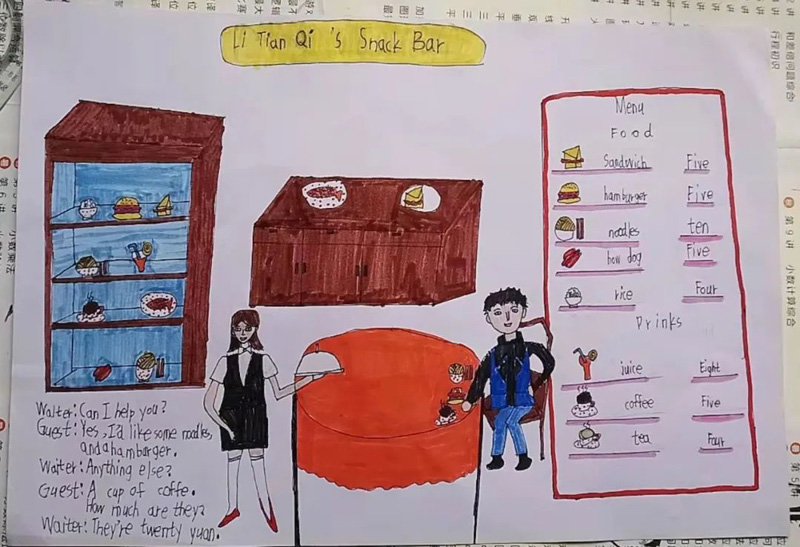 Li Tian Qi 's Snack Bar
Menu
Food
Sandwich Five
hamburger Five
noodles ten
how dog Five
rice Four
Drinks
juice Eight
coffee Five
tea Four
Waiter: Can I help you?
Guest: Yes, I'd like some noodles,
and a hamburger.
Waiter: Anything else?
Guest: A cup of coffe.
How much are they?
Waiter: They're twenty yuan.
和差倍问题综合
行程初识
第9讲 小数计算综合
第6讲 小数乘法